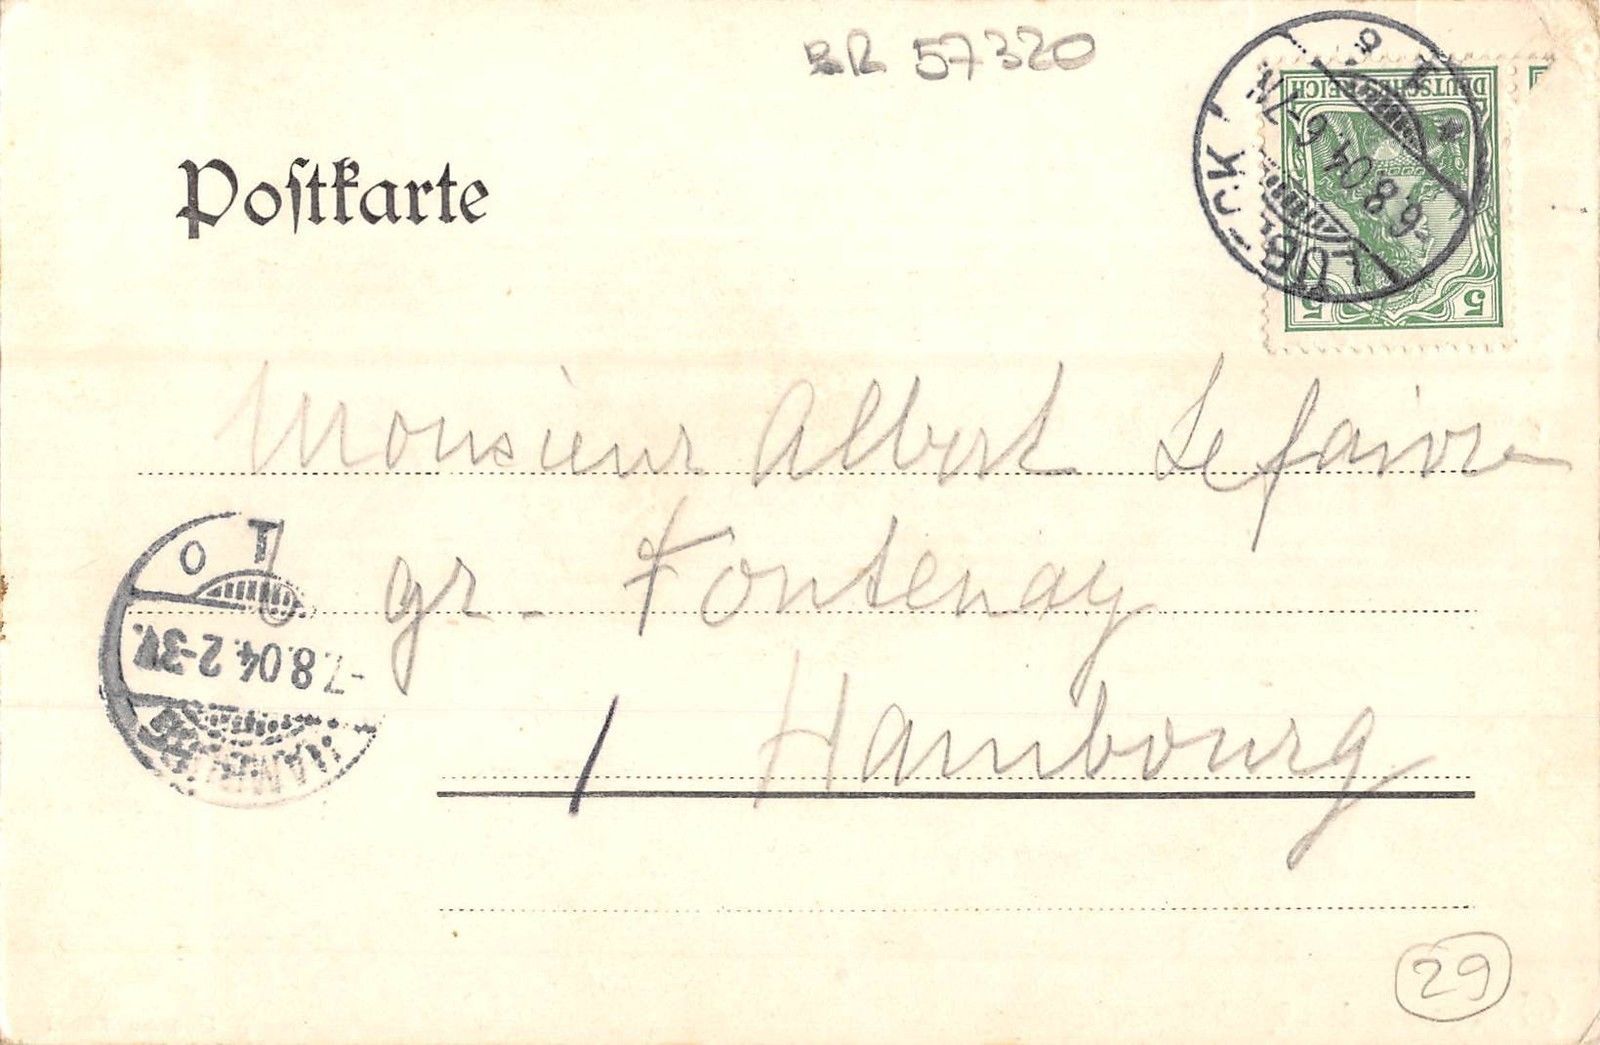 57320
Postkarte
DEUTSCHES REICH
5 5
LÜBECK
-6.8.04. 6-7N.
Monsieur Albert Lefaivre
gr. Fontenay
Hambourg
-7.8.04. 2-3V.
29